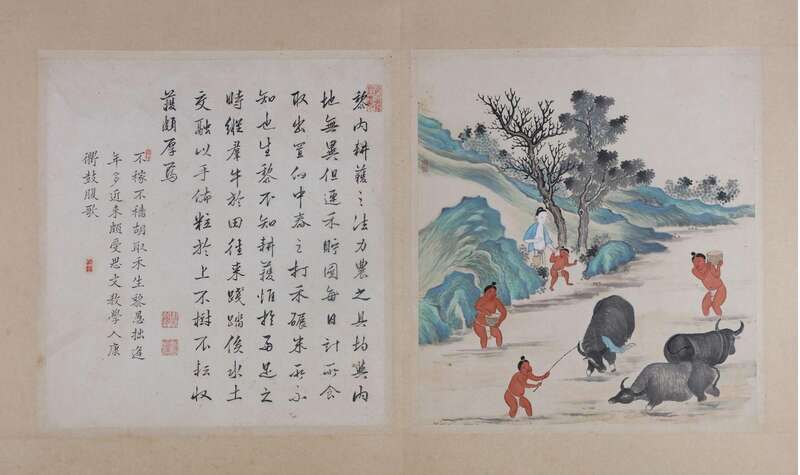 黎內耕穫之法力農之具均與內
地無異但連禾貯囷每日計所食
取出置臼中舂之打禾碾米所不
知也生黎不知耕穫惟於雨足之
時縱群牛於田往來踐踏俟水土
交融以手播粒於上不樹不耘收
穫頗厚焉
不稼不穡胡取禾生黎愚拙迨
年多近來頗受思文教學入康
衢鼓腹歌